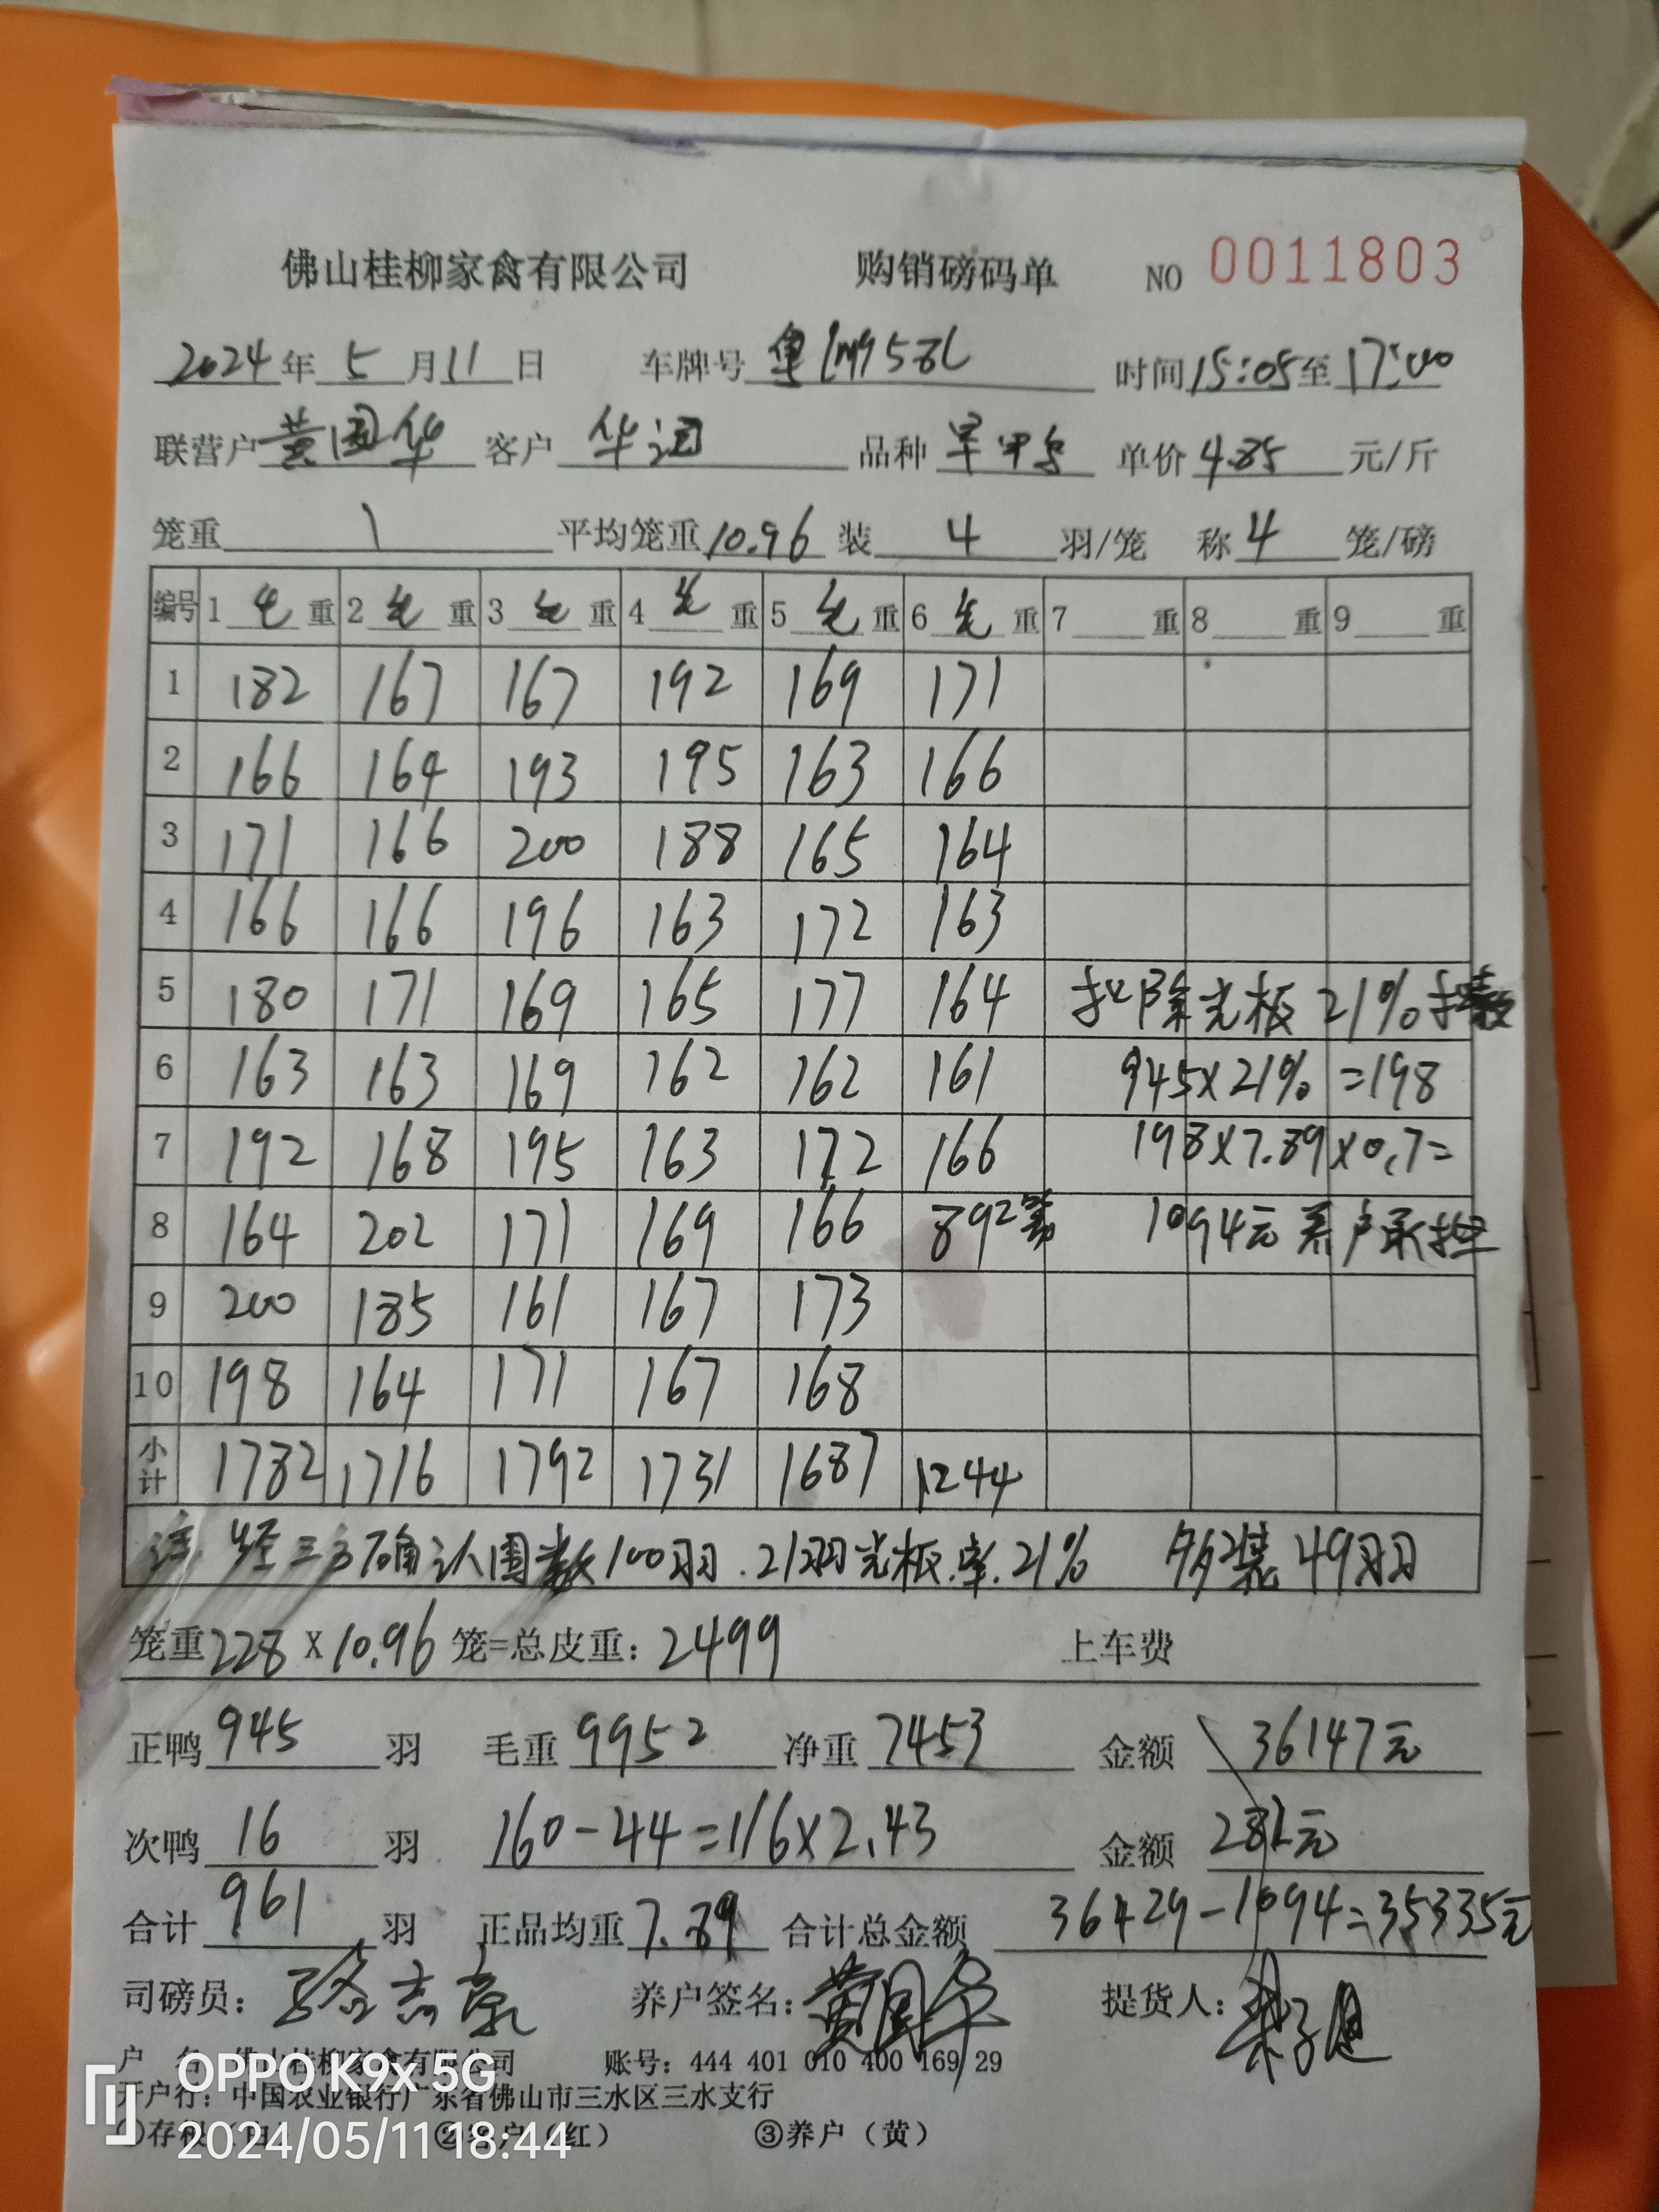 佛山桂柳家禽有限公司 购销磅码单 NO 0011803
2024年 5 月 11 日 车牌号 粤 时间 15:05 至 17:00
联营户 黄国华 客户 华润 品种 单价 4.85 元/斤
笼重 \ 平均笼重 10.96 装 4 羽/笼 称 4 笼/磅
编号 1 毛 重 2 毛 重 3 毛 重 4 毛 重 5 毛 重 6 毛 重 7 重 8 重 9 重
1 182 167 167 192 169 171
2 166 164 193 195 163 166
3 171 166 200 188 165 164
4 166 166 196 163 172 163
5 180 171 169 165 177 164 扣除光板 21%
6 163 163 169 162 162 161 945×21% =198
7 192 168 195 163 172 166 198×7.89×0.7=
8 164 202 171 169 166 89 1094元 养户承担
9 200 185 161 167 173
10 198 164 171 167 168
小计 1782 1716 1792 1731 1687 1244
注, 经三方确认围数100羽.21羽光板.率.21% 多装49羽
笼重 228 X 10.96 笼=总皮重: 2499 上车费
正鸭 945 羽 毛重 9952 净重 7453 金额 36147元
次鸭 16 羽 160-44=116×2.43 金额 282元
合计 961 羽 正品均重 7.89 合计总金额 36429-1094=35335元
司磅员: 骆志 养户签名: 黄国华 提货人:
户 名 佛山桂柳家禽有限公司 账号: 444 401 010 400 169 29
开户行: 中国农业银行广东省佛山市三水区三水支行
①存根(白) ②客户(红) ③养户(黄)
OPPO K9x 5G
2024/05/11 18:44